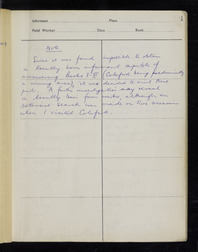 Informant Place
Field Worker Date Book
Note
Since it was found impossible to obtain
a locally born informant capable of
answering Books (Coleford being predominantly
a mining area), it was decided to omit that
part. A further investigation may reveal
a locally born farm worker, although an
extensive search was made on two occasions
when I visited Coleford.